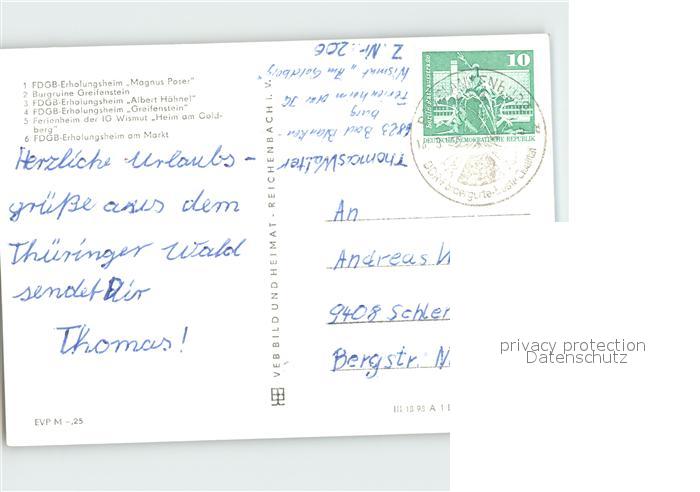 1 FDGB-Erholungsheim „Magnus Poser"
2 Burgruine Greifenstein
3 FDGB-Erholungsheim „Albert Hähnel"
4 FDGB-Erholungsheim „Greifenstein"
5 Ferienheim der IG Wismut „Heim am Gold-
berg"
6 FDGB-Erholungsheim am Markt
Herzliche Urlaubs-
grüße aus dem
Thüringer Wald
sendet Dir
Thomas!
EVP M –,25
VEB BILD UND HEIMAT · REICHENBACH i. V.
Thomas Walter
6823 Bad Blanken-
burg
Ferienheim der IG
Wismut „Am Goldberg"
Z. Nr.: 206
10
DEUTSCHE DEMOKRATISCHE REPUBLIK
An
Andreas W
9408 Schle
Bergstr. N
III 18 95 A 1
privacy protection
Datenschutz